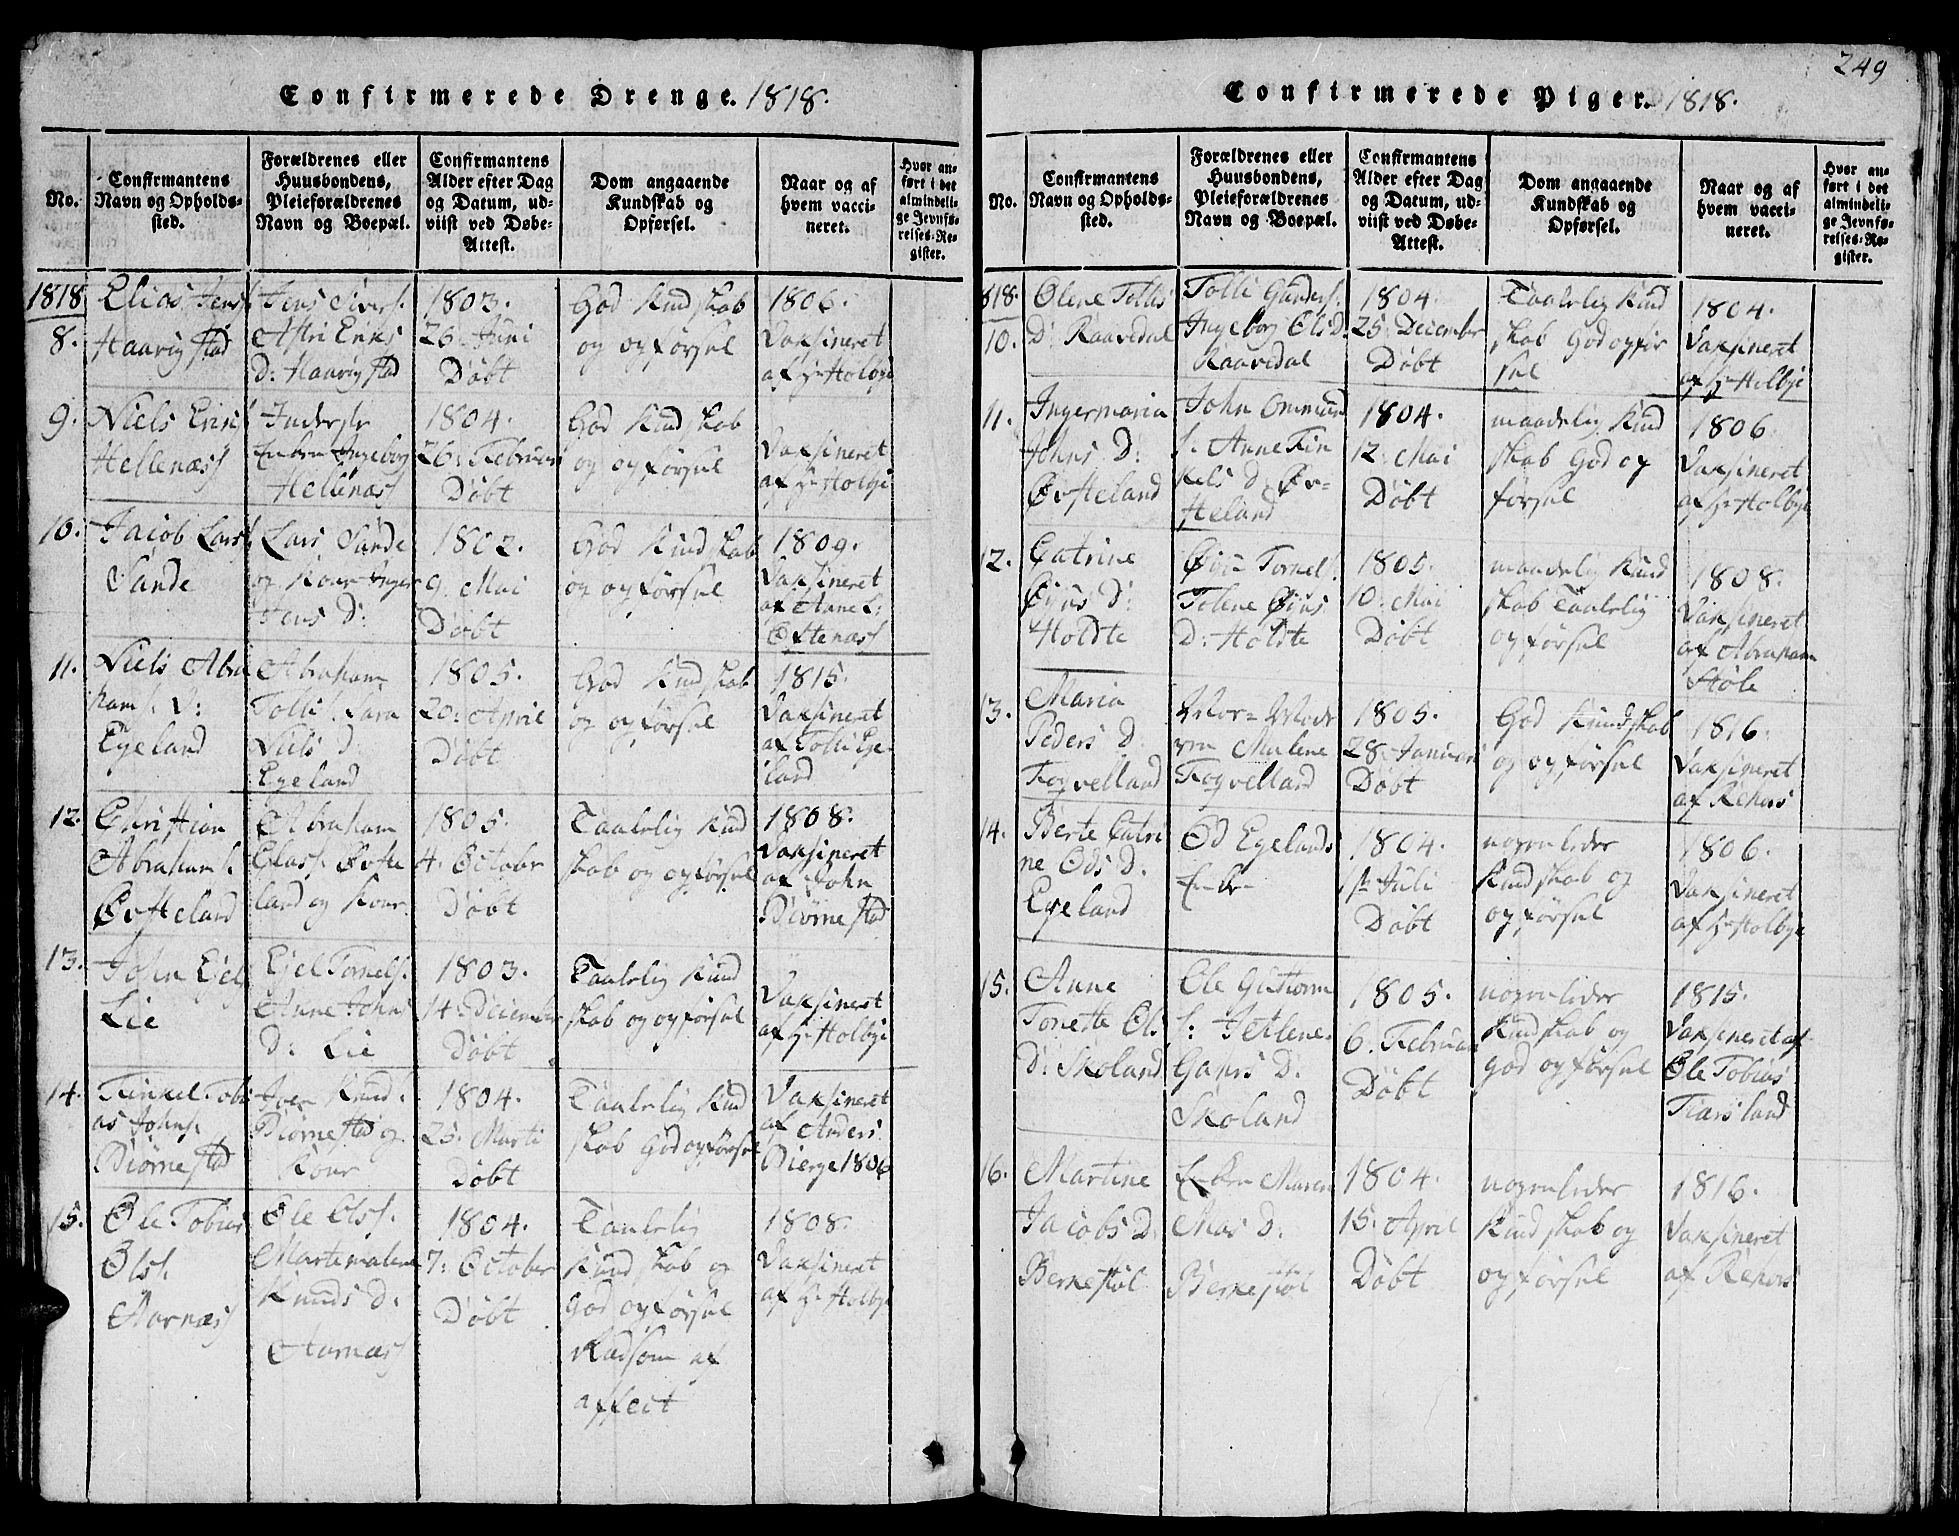 Confirmerede Drenge. 1818.
No.
Confirmantens
Navn og Opholds-
sted.
Forældrenes eller
Huusbondens,
Pleieforældrenes
Navn og Boepæl.
Confirmantens
Alder efter Dag
og Datum, ud-
viist ved Døbe-
Attest.
Dom angaaende
Kundskab og
Opførsel.
Naar og af
hvem vacci-
neret.
Hvor an-
ført i det
almindeli-
ge Jevnfø-
relses-Re-
gister.
1818
8.
Elias Jens
Haarigstad
Jens Sivers.
Astri Eriks
D: Haarigstad
1803.
26. Juni
Døbt
God Kundskab
og opførsel
1806.
Vaksineret
af Hr Holbye
9.
Niels Erics
Hellenæss
Inderste
Enken Ingeborg
Hellenæss
1804.
26. Februari
Døbt
God Kundskab
og opførsel
Vaksineret
af Hr Holbye
10.
Jacob Lars
Sande
Lars Sande
og Kone Inger
Jens D:
1802.
9. Mai
Døbt
God Kundskab
og opførsel
1809.
Vaksineret
af Anne L:
Østenæss
11.
Niels Abra
hams. D:
Egeland
Abraham
Tollis. Sara
Niels D:
Egeland
1805.
20: April
Døbt
God Kundskab
og opførsel
1815.
Vaksineret
af Tolli Ege
land
12.
Christian
Abraham s.
Øvsteland
Abraham
Clas s. Øfste
land og Kone
1805.
4. October
Døbt
Taalelig Kund
skab og opførsel
1808.
Vaksineret
af John
Biørnestad
13.
John Ejels
Lie
Ejel Tornels.
Anne Johns
D: Lie
1803.
14. Deicember
Døbt
Taalelig Kund
skab og opførsel
Vaksineret
af Hr Holbye
14.
Tinkel Tobi
as Johns.
Biørnestad
Biørnestad og
Kone
1804.
25. Marti
Døbt
Taalelig Kund
skab God opførsel
Vaksineret
af Anders
Bierge 1806
15.
Ole Tobias
Ols.
Aarnæss
Ole Olss.
Martemalene
Knuds D.
Aarnæss
1804.
7: October
Døbt
Taalelig
Kundskab og
god opførsel
affect
1808.
Vaksineret
af Hr Holbye
249
Confirmerede Piger. 1818.
No.
Confirmantens
Navn og Opholds-
sted.
Forældrenes eller
Huusbondens,
Pleieforældrenes
Navn og Boepæl.
Confirmantens
Alder efter Dag
og Datum, ud-
viist ved Døbe-
Attest.
Dom angaaende
Kundskab og
Opførsel.
Naar og af
hvem vacci-
neret.
Hvor an-
ført i det
almindeli-
ge Jevnfø-
relses-Re-
gister.
818.
10.
Olene Tollis
D: Raavedal
Tolli Gunders.
Ingeborg Ols D.
Raavedal
1804.
25. December
Døbt
Taalelig Kund
skab God opfør
sel
1804.
Vaksineret
af Hr Holbye
11.
Ingermaria
Johns D:
Øvsteland
John Ommund
s. Anne Tin
kels D. Øv-
steland
1804.
12. Mai
Døbt
maadelig Kund
skab God op
førsel
1806.
Vaksineret
af Hr Holbye
12.
Catrine
Øjus D:
Holdte
Tornels.
Tolene Øius
D: Holdte
1805.
10. Mai
Døbt
maadelig Kund
skab Taalelig
opførsel
1808.
Vaksineret
af Abraham
Stole
13.
Maria
Peders D.
Fogvelland
Malene
Fogvelland
1805.
28. Januari
Døbt
God Kundskab
og opførsel
1816.
Vaksineret
af Rekors
14.
Berte Catri
ne Ods D.
Egeland
Od Egelands
Enke
1804.
1ste Juli
Døbt
nogenleder
Kundskab og
opførsel
1806.
Vaksineret
af Hr Holbye
15.
Anne
Tonette Ols
D: Skoland
Ole Guttorm
s. Jetlene
Gabris D.
Skoland
1805.
6. Februari
Døbt
nogenleder
Kundskab og
god opførsel
1815.
Vaksineret af
Ole Tobias
Tiarsland
16.
Martine
Jacobs D.
Berkestøl
Enken Maren
Mas D.
Berkestøl
1804.
15. April
Døbt
nogenleder
Kundskab og
opførsel
1816.
Vaksineret
af Rekors